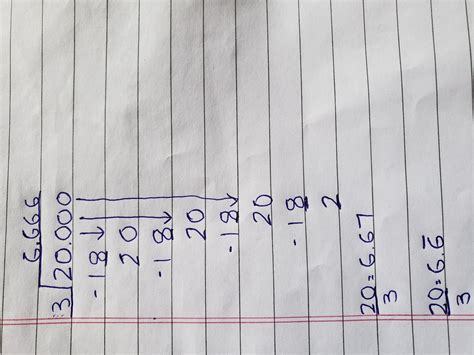 6.666
3 20.000
-18
20
-18
20
-18
20
-18
2
20 = 6.67
3
20 = 6.6̅
3